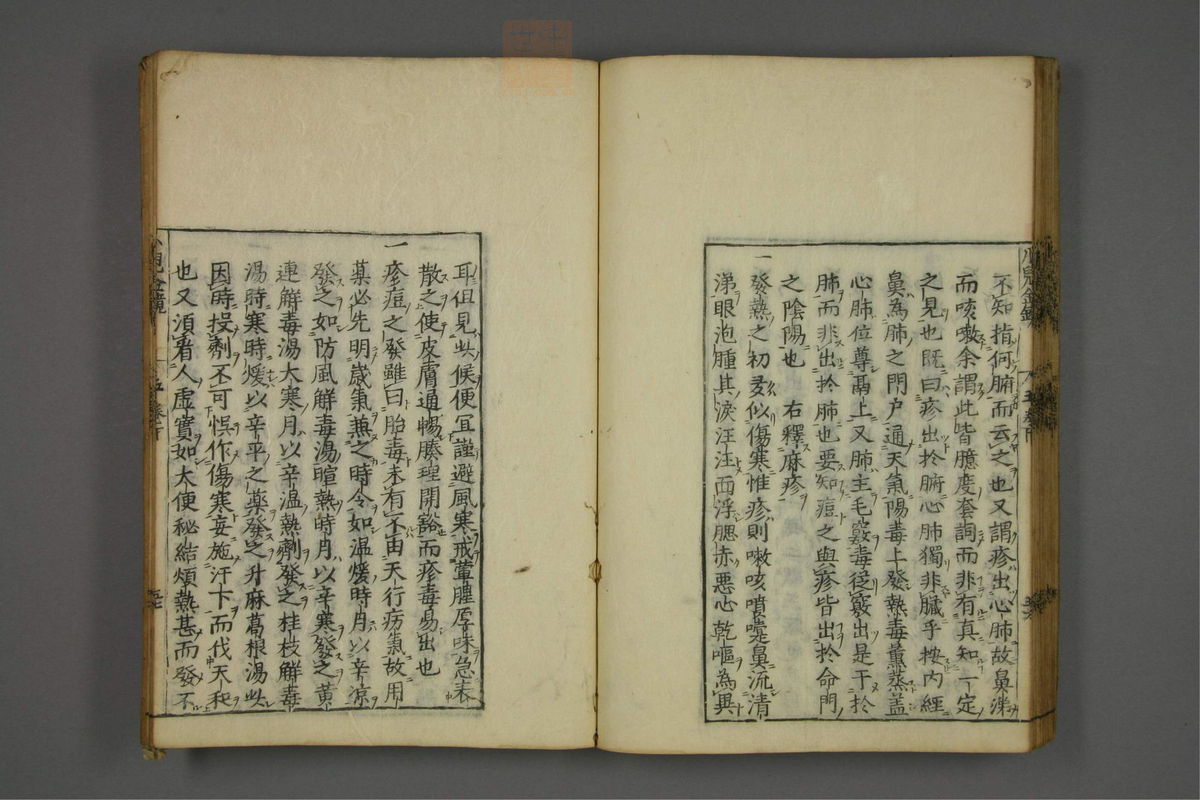 不知指何腑而云之也又謂疹出心肺故鼻涕
而咳嗽余謂此皆臆度套詞而非有真知一定
之見也既曰疹出於腑心肺獨非臟乎按内經
鼻為肺之門户通天氣陽毒上發熱毒薰蒸盖
心肺位尊髙上又肺主毛竅毒從竅出是干於
肺而非出於肺也要知痘之與疹皆出於命門
之陰陽也 右釋麻疹
一發熱之初多似傷寒惟疹則嗽咳噴嚏鼻流清
涕眼泡腫其淚汪汪面浮腮赤惡心乾嘔為異
耳但見此候便宜謹避風寒戒葷腥厚味急表
散之使皮膚通暢腠理開豁而疹毒易出也
一疹痘之發雖曰胎毒未有不由天行疠氣故用
藥必先明歲氣兼之時令如温煖時月以辛凉
發之如防風解毒湯暄熱時月以辛寒發之黄
連解毒湯大寒月以辛温熱劑發之桂枝解毒
湯時寒時煖以辛平之藥發之升麻葛根湯此
因時投劑不可悞作傷寒妄施汗下而伐天和
也又須看人虚實如大便秘結煩熱甚而發不